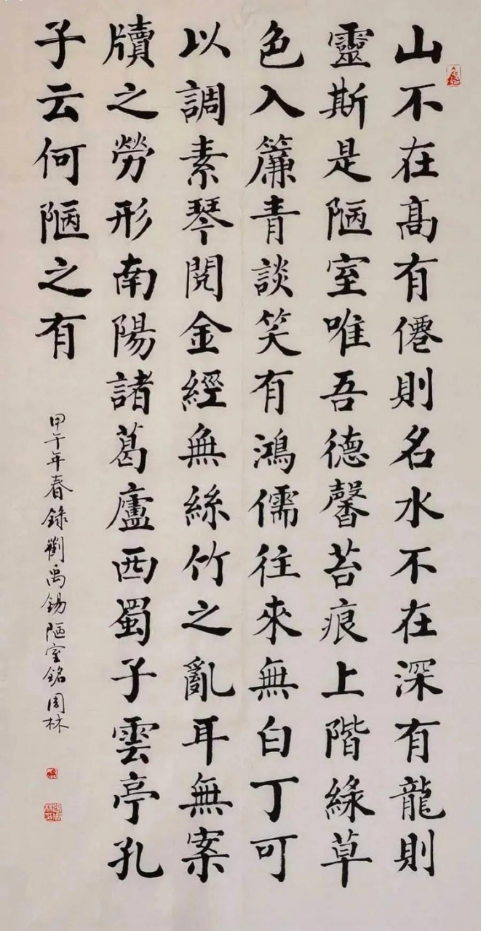 山不在高有僊則名水不在深有龍則
靈斯是陋室唯吾德馨苔痕上階緑草
色入簾青談笑有鴻儒往來無白丁可
以調素琴閱金經無絲竹之亂耳無案
牘之勞形南陽諸葛廬西蜀子雲亭孔
子云何陋之有
甲午年春錄劉禹錫陋室銘周林